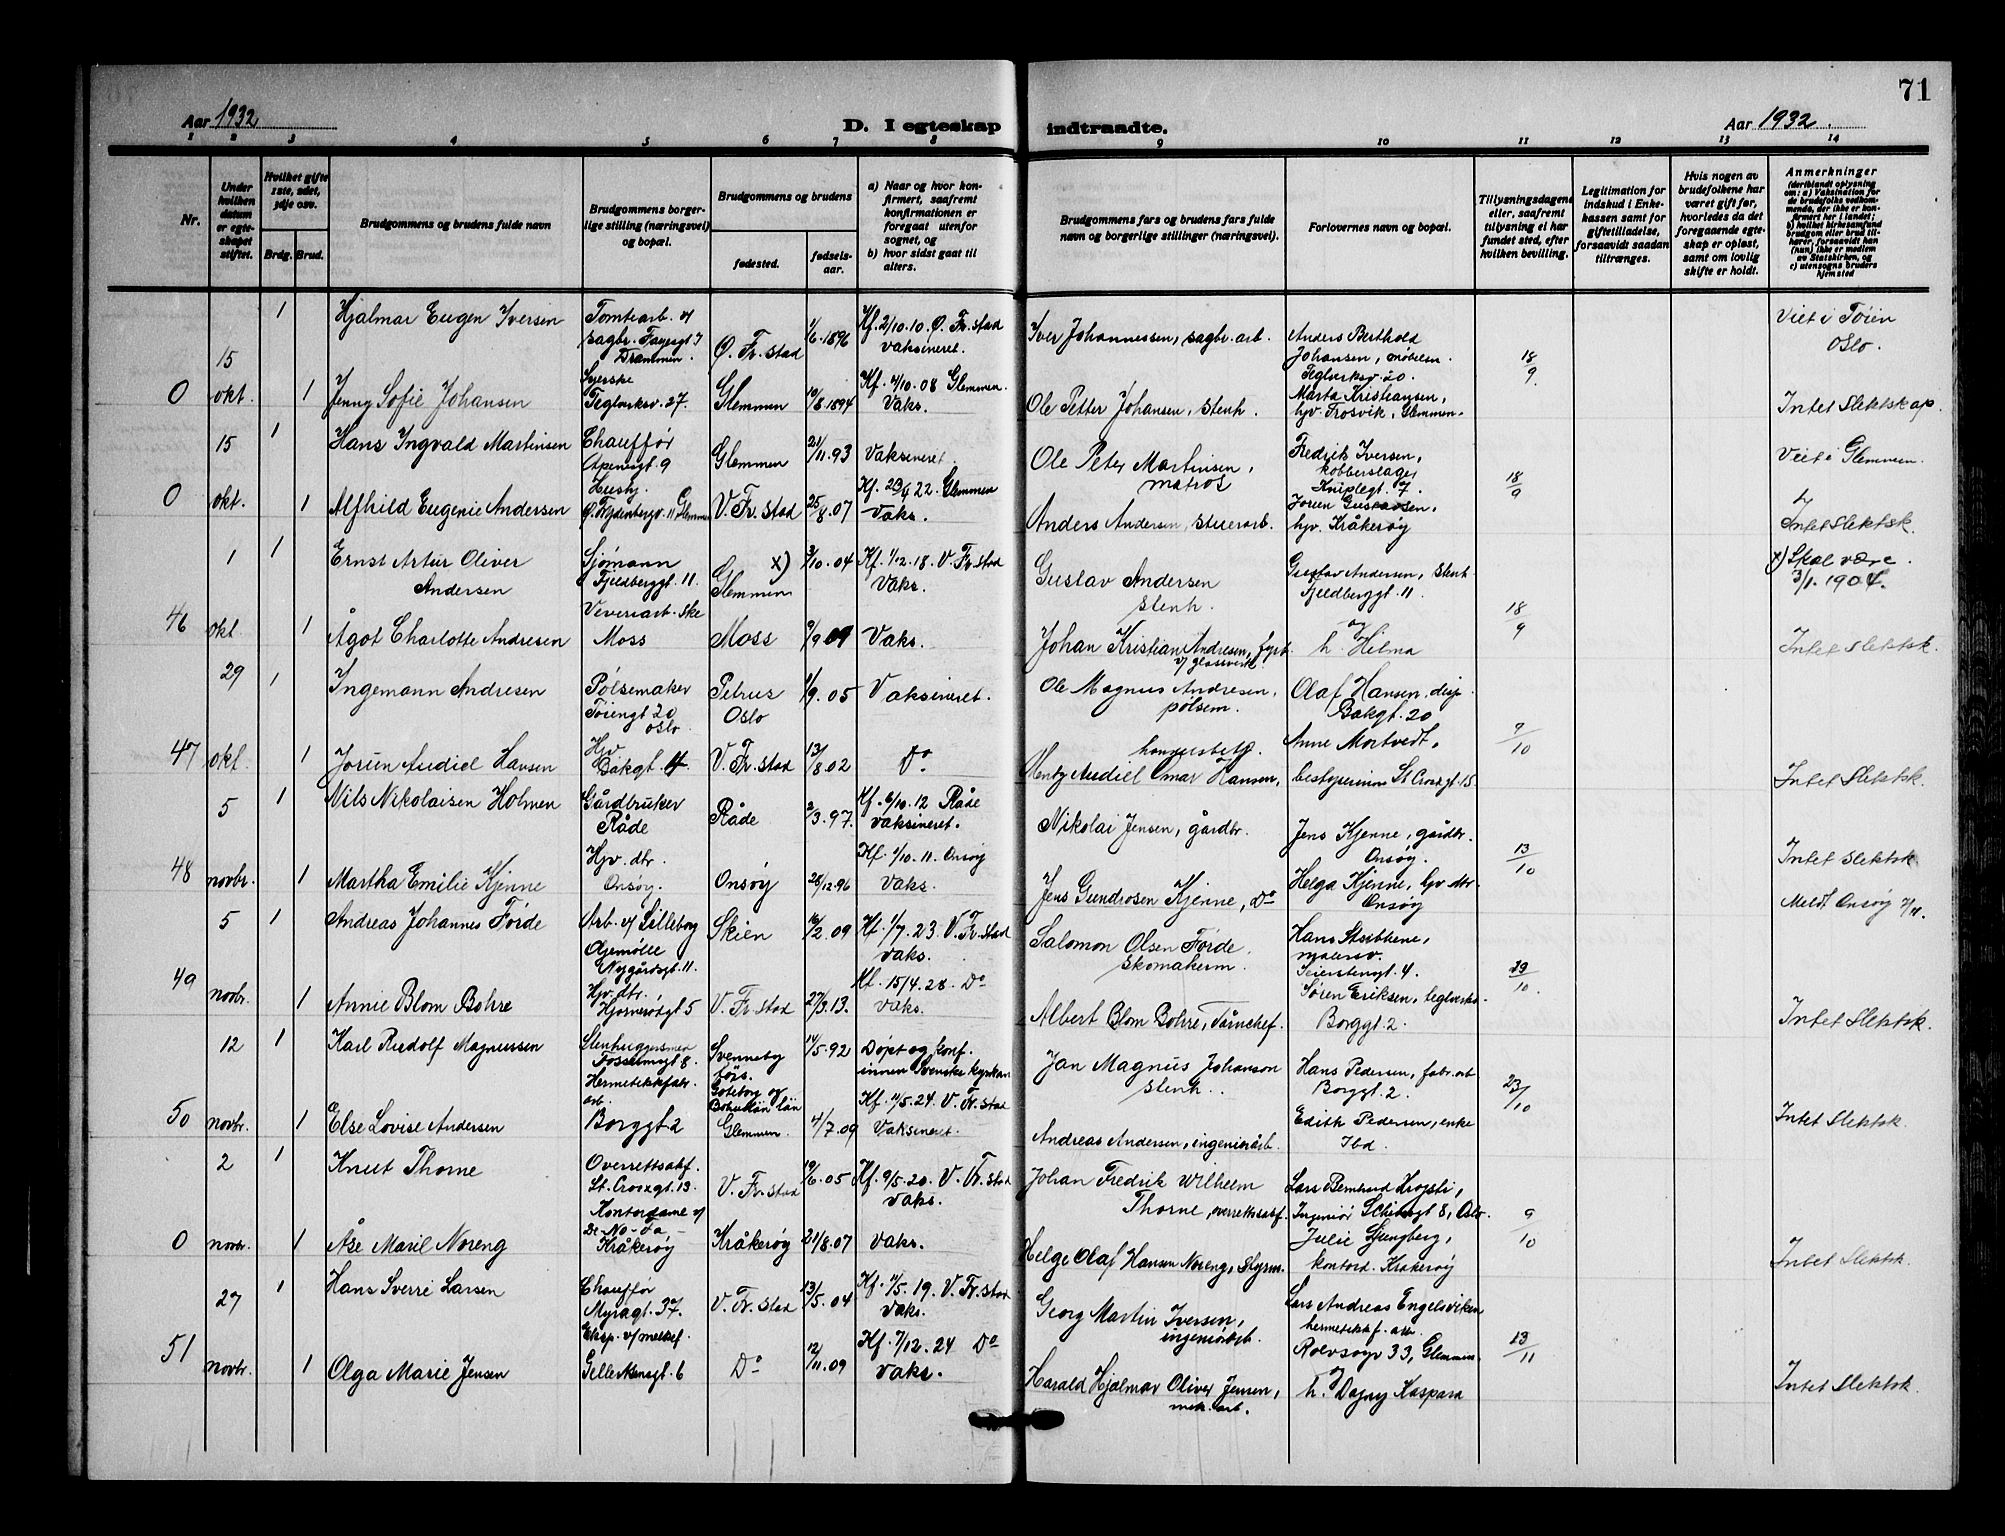 71
Aar 1932
D. I egteskap indtraadte.
Aar 1932.
1 2 3 4 5 6 7 8 9 10 11 12 13 14
Nr.
Under hvilken datum er egteskapet stiftet.
Hvilket gifte 1ste, 2det, 3dje osv.
Brdg. Brud.
Brudgommens og brudens fulde navn
Brudgommens borgerlige stilling (næringsvei) og bopæl.
Brudgommens og brudens
fødested.
fødselsaar.
a) Naar og hvor konfirmert, saafremt konfirmationen er foregaat utenfor sognet, og
b) hvor sidst gaat til alters.
Brudgommens fars og brudens fars fulde navn og borgerlige stillinger (næringsvei).
Forlovernes navn og bopæl.
Tillysningsdagene eller, saafremt tillysning ei har fundet sted, efter hvilken bevilling.
Legitimation for indskud i Enkekassen samt for giftetilladelse, forsaavidt saadan tiltrænges.
Hvis nogen av brudefolkene har været gift før, hvorledes da det foregaaende egteskap er opløst, samt om lovlig skifte er holdt.
Anmerkninger
(deriblandt oplysning om: a) Vaksination for de brudefolks vedkommende, der ikke er konfirmert her i landet; b) hvilket kirkesamfund brudgom eller brud tilhører, forsaavidt han (hun) ikke er medlem av Statskirken, og c) utensogns bruders hjemsted
15 1 Hjalmar Eugen Iversen Tomtearb. v/ sagbr. Drammen. Ø. Fr.stad 1/6.1896 Kf. 2/10.10. Ø. Fr.stad vaksineret. Iver Johannessen, sagbr. arb. Anders Berthold Johansen, møbelsn. Teglverksv 20. 18/9 Viet i Tøien Oslo.
0 okt. 1 Jenny Sofie Johansen Syerske Teglverksv. 27. Glemmen 10/8.1894 Kf. 4/10.08 Glemmen. Vaks. Ole Petter Johansen, stenh. Marta Kristiansen, hjv. Trosvik, Glemmen. Intet Slektskap.
15 1 Hans Ingvald Martinsen Chauffør Apenesgt. 9 Glemmen 21/11.93 Vaksineret. Ole Peter Martinsen, matros Fredrik Iversen, kobberslager Kniplegt. 7. 18/9 Viet i Glemmen.
0 okt. 1 Alfhild Eugenie Andersen Hushj. V. Fr.stad 25/8.07 Kf. 23/4 22. Glemmen Vaks. Anders Andersen, stuerarb. Joren Gustavsen, hjv. Kråkerøy Intet Slektsk.
1 1 Ernst Artur Oliver Andersen Sjømann Fjeldberggt. 11. Glemmen x) 3/10.04 Kf. 1/12.18. V. Fr.stad Vaks. Gustav Andersen stenh. Gustav Andersen, stenh. Fjeldberggt. 11 18/9 x) Skal være 3/1.1904.
46 okt. 1 Ågot Charlotte Andresen Veveriarb.ske Moss Moss 9/9 09 Vaks. Johan Kristian Andresen, fyrb. v/ glassverk. og h. Hilma Intet Slektsk.
29 1 Ingemann Andresen Pølsemaker Tøiengt 20 Oslo Petrus Oslo 1/9.05 Vaksineret. Ole Magnus Andresen, pølsem. Olaf Hansen, disp. Bakgt. 20 9/10
47 okt. 1 Jorun Audiel Hansen Hjv Bakgt. V. Fr.stad 13/8.02 Do. Hentz Audiel Omar Hansen, Anne Mortvedt, bestyrerinne St. Croixgt. 15. Intet Slektsk.
5 1 Nils Nikolaisen Holmen Gårdbruker Råde Råde 2/3.97. Kf. 6/10.12 Råde vaksineret. Nikolai Jensen, gårdbr. Jens Kjenne, gårdbr. Onsøy. 13/10 Intet Slektsk
48 novbr. 1 Martha Emilie Kjenne Hjv. dtr. Onsøy. Onsøy 28/12.96 Kf. 1/10.11. Onsøy Vaks. Jens Gundrosen Kjenne, Do Helga Kjenne, hjv. dtr. Onsøy Meldt Onsøy
5 1 Andreas Johannes Førde Arb. v/ Lilleborg Oljemølle Nygårdsgt. 11. Skien 16/2.09 Kf. 1/7.23. V. Fr.stad vaks. Salomon Olsen Førde, skomakerm. Hans Stubbene, malersv. Seierstengt. 4. 23/10.
49 novbr. 1 Annie Blom Bohre Hjv. dtr. V. Fr.stad 27/3.13. Kf. 15/4.28. Do vaks. Albert Blom Bohre, Tårnchef. Søren Eriksen, teglverks- Borggt. 2. Intet Slektsk.
12 1 Karl Rudolf Magnussen Stenhuggersmed Fosselmogt 8. Svenneby förs. Göteborg og Bohuslän län 14/5.92 Døpt og konf. innen Svenske kyrkan Jan Magnus Johanson stenh. Hans Pedersen, fabr.arb Borggt. 2 23/10
50 novbr. 1 Else Lovise Andersen Hermetikkfabr. arb. Borggt 2 Glemmen. 4/7.09 Kf. 4/5.24. V. Fr.stad Vaksineret. Andreas Andersen, ingeniørarb. Edith Pedersen, enke Ibd. Intet Slektsk.
2 1 Knut Thorne Overrettssakf. St. Croixgt. 13. V. Fr.stad 19/6.05 Kf. 9/5.20. V. Fr.stad vaks. Johan Fredrik Wilhelm Thorne, overrettssakf. Lars Bernhard Krogsti, Ingeniør 8, Oslo. 9/10
0 novbr. 1 Åse Maril Noreng Kontordame v/ De-No-Fa- Kråkerøy Kråkerøy 21/8.07 Vaks. Helge Olaf Hansen Noreng, Styrm. Julie Ljungberg, kontord. Kråkerøy Intet Slektsk.
27 1 Hans Sverre Larsen Chauffør Myragt. 37. V. Fr.stad 13/5.04 Kf. 4/5.19. V. Fr.stad Vaks. Georg Martin Iversen, ingeniørarb. Lars Andreas Engelsviken hermetikkf. arb. Rolvsøyv 33, Glemmen. 13/11
51 novbr. 1 Olga Marie Jensen Eksp. v/ melkef. Do 12/11.09 Kf. 7/12.24 Do Vaks. Harald Hjalmar Oliver Jensen, mek. arb. og h. Dagny Kaspara Intet Slektsk.